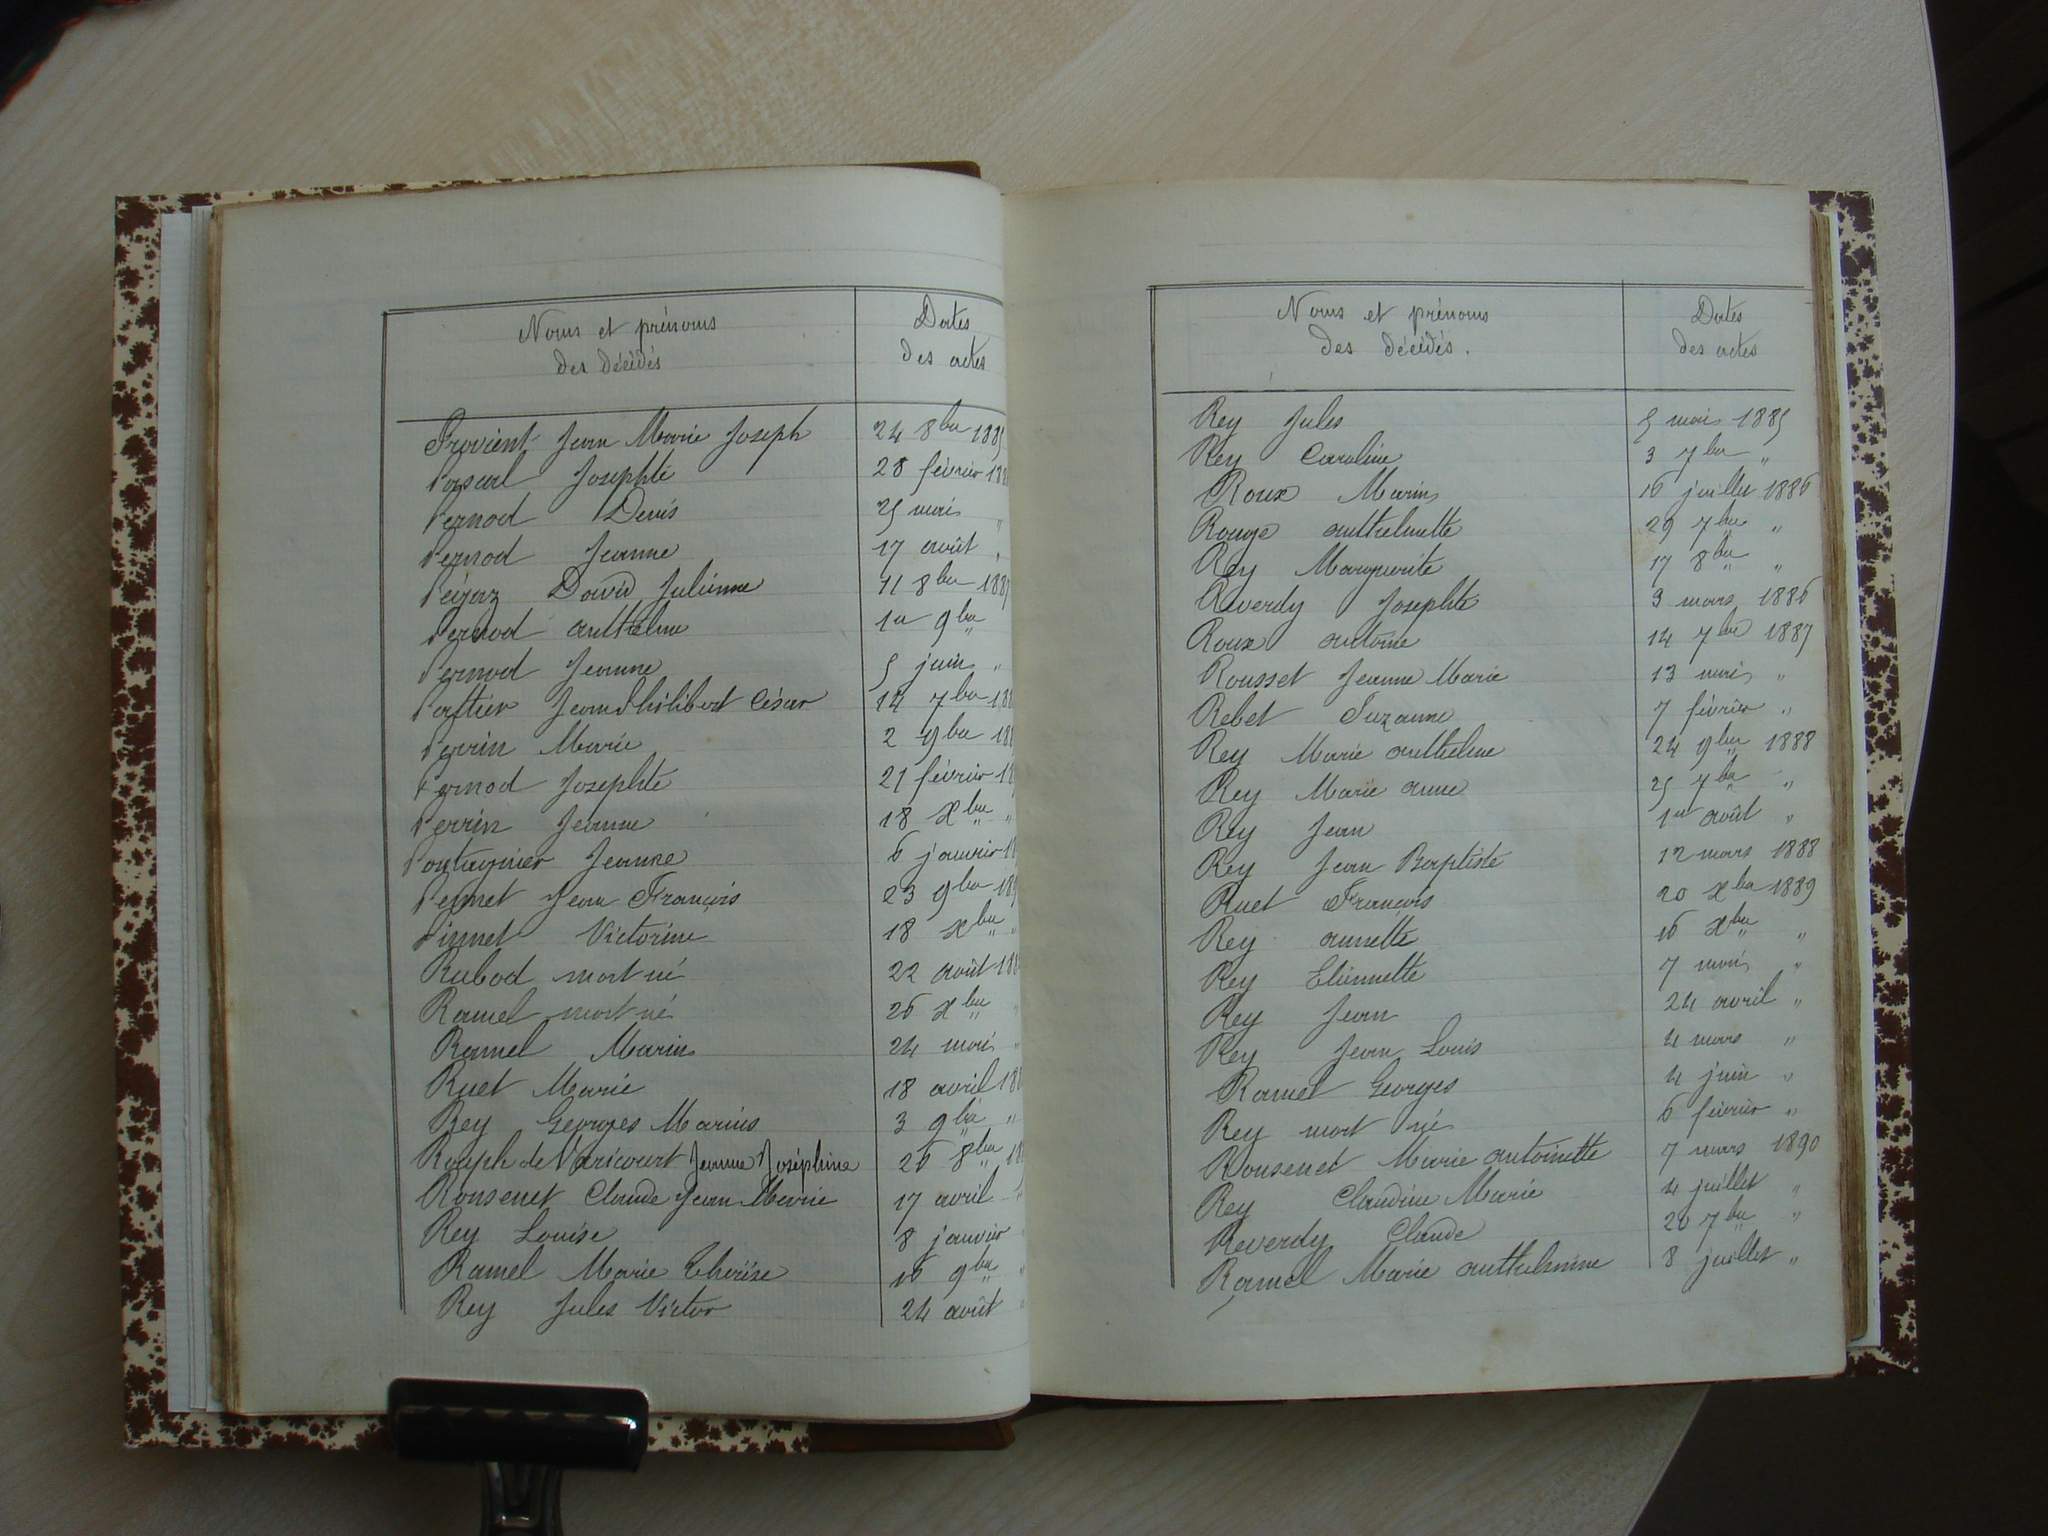 Noms et prénoms
des décédés
Dates
des actes
Provient Jean Marie Joseph 24 8bre 1885
Pascal Josephte 28 février 188
Pernod Denis 25 mai "
Pernod Jeanne 17 août "
Péjaz David Julienne 11 8bre 1887
Pernod Anthelme 1er 9bre "
Pernod Jeanne 5 juin "
Jean Philibert César 14 7bre 188
Perrin Marie 2 9bre 188
Pernod Josephte 21 février 18
Perrin Jeanne 18 Xbre "
Jeanne 6 janvier 18
Pernet Jean François 23 9bre 18
Pinnet Victorine 18 Xbre "
Rubod mort né 22 août 188
Ramel mort né 26 Xbre "
Ramel Marin 24 mai "
Ruet Marie 18 avril 188
Rey Georges Marius 3 9bre "
Rouph de Varicourt Jeanne Joséphine 26 8bre 18
Rousenet Claude Jean Marie 17 avril "
Rey Louise 8 janvier
Ramel Marie Thérèse 16 9bre "
Rey Jules Victor 24 août "
Noms et prénoms
des décédés.
Dates
des actes
Rey Jules 5 mai 1885
Rey Caroline 3 7bre "
Roux Marin 16 juillet 1886
Rouge Anthelmette 29 7bre "
Rey Marguerite 17 8bre "
Reverdy Josephte 3 mars 1886
Roux Antoine 14 7bre 1887
Rousset Jeanne Marie 13 mai "
Rebet Suzanne 7 février "
Rey Marie Anthelme 24 9bre 1888
Rey Marie Anne 25 7bre "
Rey Jean 1er août "
Rey Jean Baptiste 12 mars 1888
Ruet François 20 Xbre 1889
Rey Annette 16 Xbre "
Rey Etiennette 7 mai "
Rey Jean 24 avril "
Rey Jean Louis 4 mars "
Ramel Georges 4 juin "
Rey mort né 6 février "
Rousenet Marie Antoinette 7 mars 1890
Rey Claudine Marie 4 juillet "
Reverdy Claude 20 7bre "
Ramel Marie Anthelmine 8 juillet "